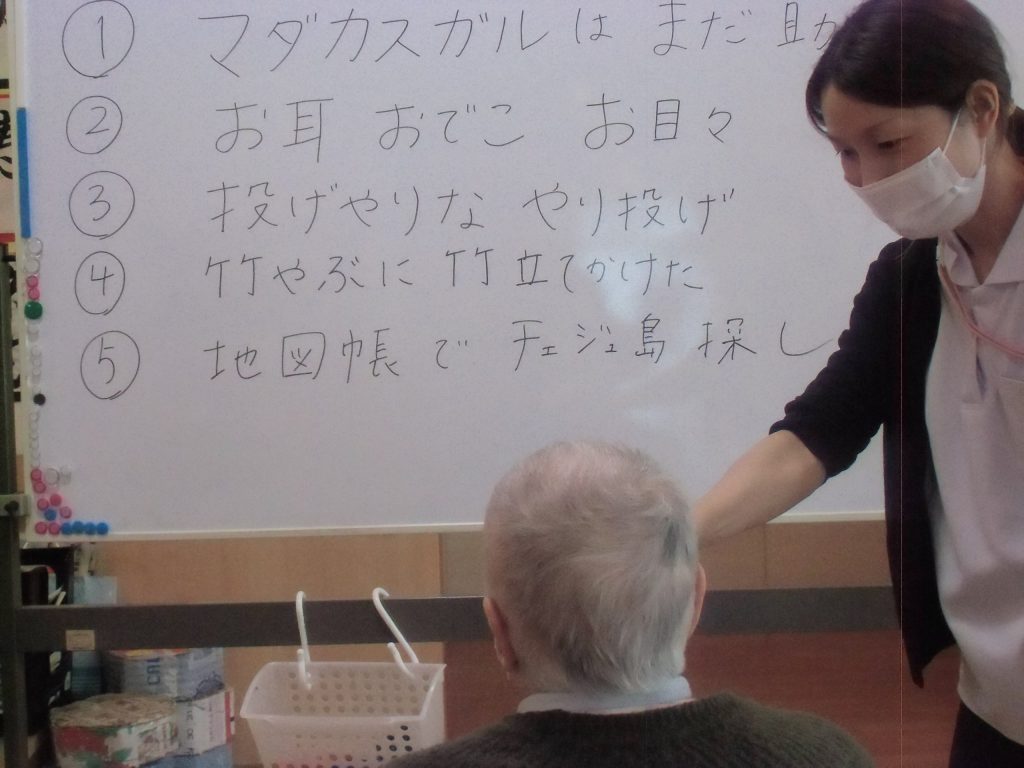 ① マダカスガルは まだ 助
② お耳 おでこ お目々
③ 投げやりな やり投げ
④ 竹やぶに 竹立てかけた
⑤ 地図帳で チェジェ島 探し